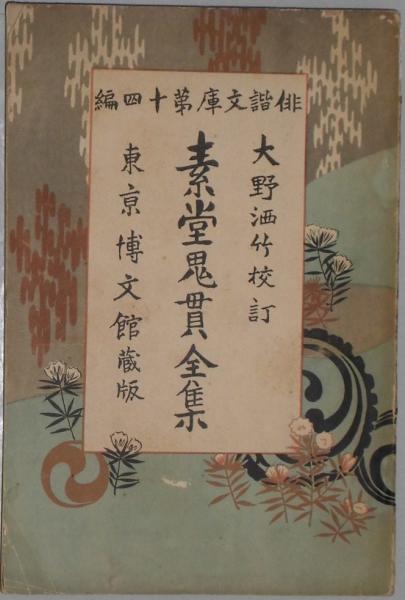 俳諧文庫第十四編
大野洒竹校訂
素堂鬼貫全集
東京博文館蔵版